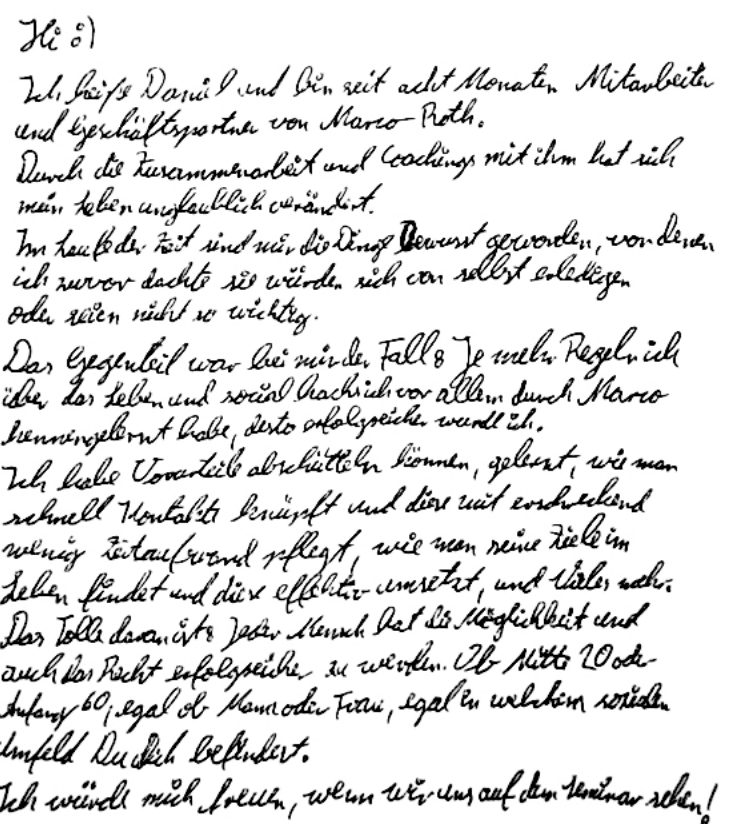 Hi :)
Ich heiße Daniel und bin seit acht Monaten Mitarbeiter
und Geschäftspartner von Marco Roth.
Durch die Zusammenarbeit und Coachings mit ihm hat sich
mein Leben unglaublich verändert.
Im Laufe der Zeit sind mir die Dinge Bewusst geworden, von denen
ich zuvor dachte sie würden sich von selbst erledigen
oder seien nicht so wichtig.
Das Gegenteil war bei mir der Fall: Je mehr Regeln ich
über das Leben und sozial vor allem durch Marco
kennengelernt habe, desto erfolgreicher wurde ich.
Ich habe Vorurteile abschütteln können, gelernt, wie man
schnell Kontakte knüpft und diese mit erschreckend
wenig Zeitaufwand pflegt, wie man seine Ziele im
Leben findet und diese effektiv umsetzt, und Vieles mehr.
Das Tolle daran ist: Jeder Mensch hat die Möglichkeit und
auch das Recht erfolgreicher zu werden. Ob Mitte 20 oder
Anfang 60, egal ob Mann oder Frau, egal in welchem sozialen
Umfeld Du Dich befindest.
Ich würde mich freuen, wenn wir uns auf dem Seminar sehen!